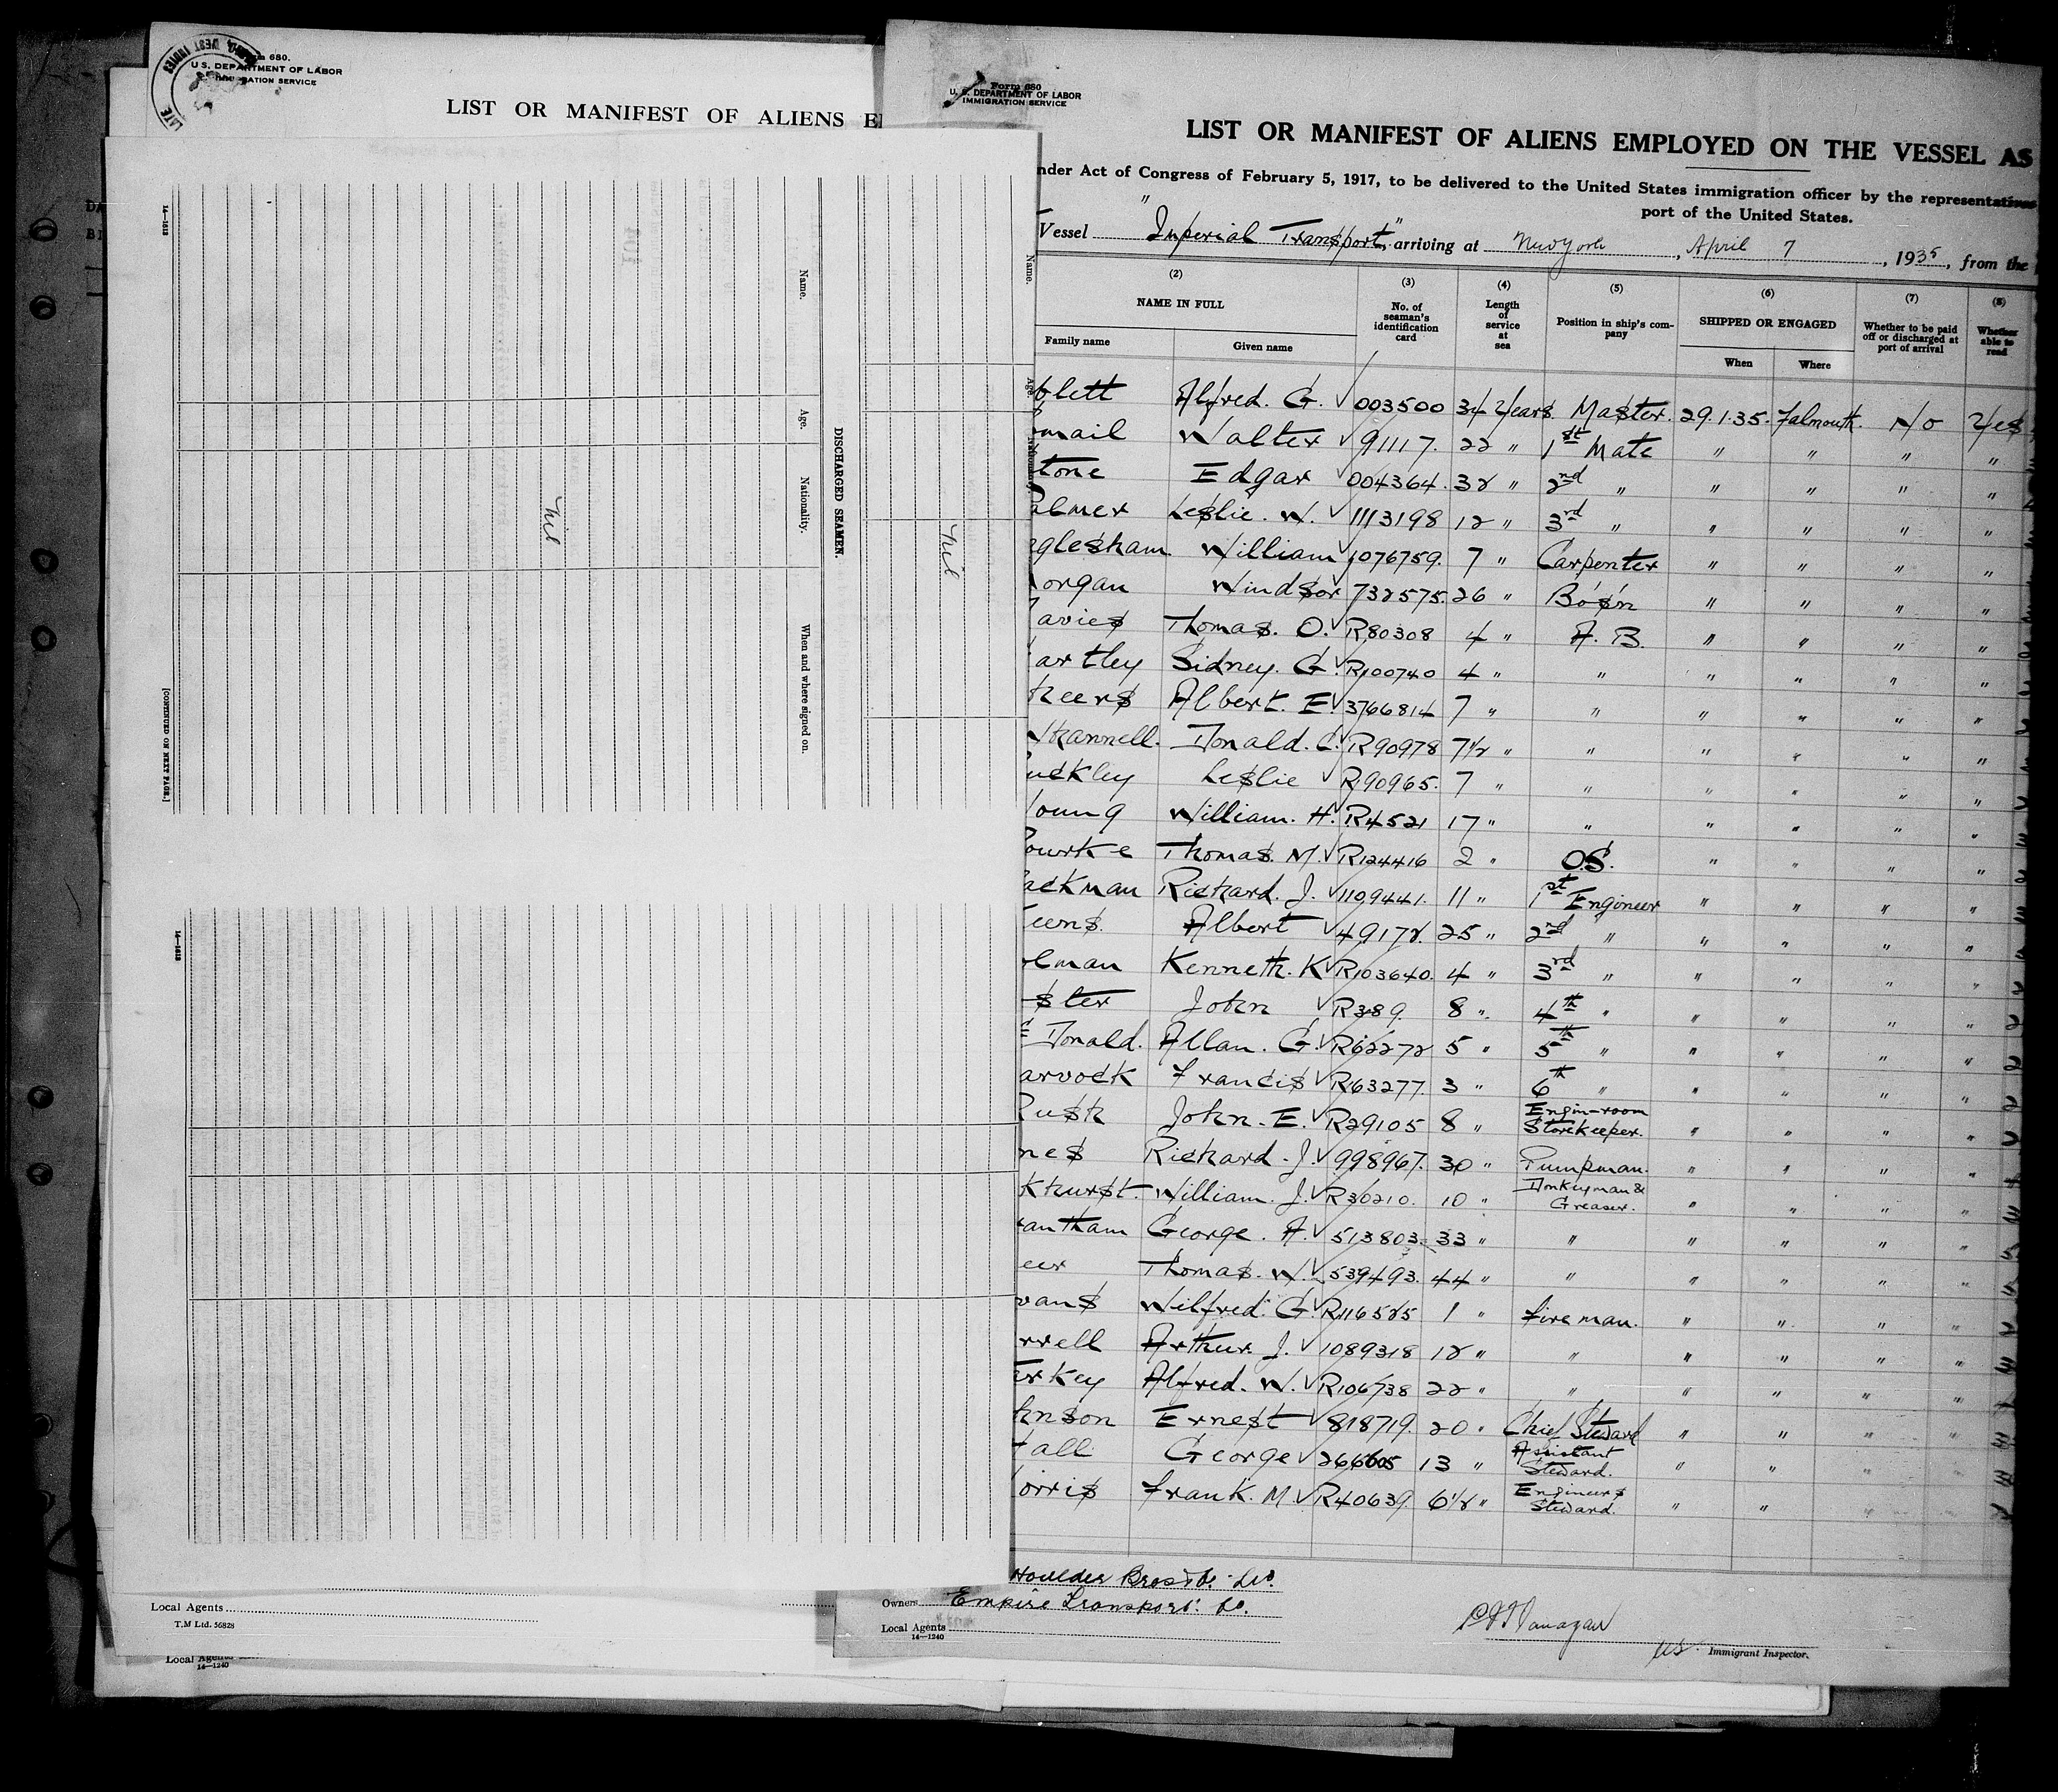 680.
U.S. DEPARTMENT OF LABOR
IMMIGRATION SERVICE
LIST OR MANIFEST OF ALIENS E
14—1613
Name.
Age.
Nationality.
When and where signed on.
DISCHARGED SEAMEN.
Name.
Age.
Nationality.
nil
nil
[CONTINUED ON NEXT PAGE.]
14—1613
Local Agents
T.M Ltd. 56828
Local Agents
14—1240
Form 680
U. S. DEPARTMENT OF LABOR
IMMIGRATION SERVICE
LIST OR MANIFEST OF ALIENS EMPLOYED ON THE VESSEL AS
nder Act of Congress of February 5, 1917, to be delivered to the United States immigration officer by the representatives
port of the United States.
Vessel "Imperial Transport," arriving at New York, April 7, 1935, from the
(2) (3) (4) (5) (6) (7) (8)
NAME IN FULL No. of seaman's identification card Length of service at sea Position in ship's company SHIPPED OR ENGAGED Whether to be paid off or discharged at port of arrival Whether able to read
Family name Given name When Where
blett Alfred. G. 003500 34 Years Master. 29.1.35. Falmouth. No Yes
mail Walter 91117. 22 " 1st Mate " " " "
tone Edgar 004364. 32 " 2nd " " " " "
almer Leslie. W. 1113198 12 " 3rd " " " " "
glesham William 1076759. 7 " Carpenter " " " "
organ Windsor 732575. 26 " Bo'sn " " " "
avies Thomas. O. R80308 4 " A. B. " " " "
artley Sidney. G. R100740 4 " " " " " "
heers Albert. E. 3766814 7 " " " " " "
hannell. Donald. C. R90978 7½ " " " " " "
uckley Leslie R90965. 7 " " " " " "
oung William. H. R4521 17 " " " " " "
ourke Thomas. M. R124416 2 " O.S. " " " "
ackman Richard. J. 1109441. 11 " 1st Engineer " " " "
eens. Albert 49172. 25 " 2nd " " " " "
lman Kenneth. K R103640. 4 " 3rd " " " " "
ster John R389. 8 " 4th " " " " "
Donald. Allan. G. R62272 5 " 5th " " " " "
arvock Francis R63277. 3 " 6th " " " " "
Rush John. E. R29105 8 " Engin-room Storekeeper. " " " "
nes Richard. J. 998967. 30 " Pumpman. " " " "
khurst. William. J. R30210. 10 " Donkeyman & Greaser. " " " "
antham George. A. 513803. 33 " " " " " "
eer Thomas. W. 539493. 44 " " " " " "
vans Wilfred. G. R116525 1 " Fireman. " " " "
rrell Arthur. J. 1089318 12 " " " " " "
rkey Alfred. W. R106738 22 " " " " " "
hnson Ernest 818719. 20 " Chief Steward " " " "
all George 266605 13 " Assistant Steward. " " " "
orris Frank. M. R40639 6½ " Engineers Steward. " " " "
Houlder Bros & Co. Ld.
Owners Empire Transport. Co.
Local Agents
14—1240
US. Immigrant Inspector.